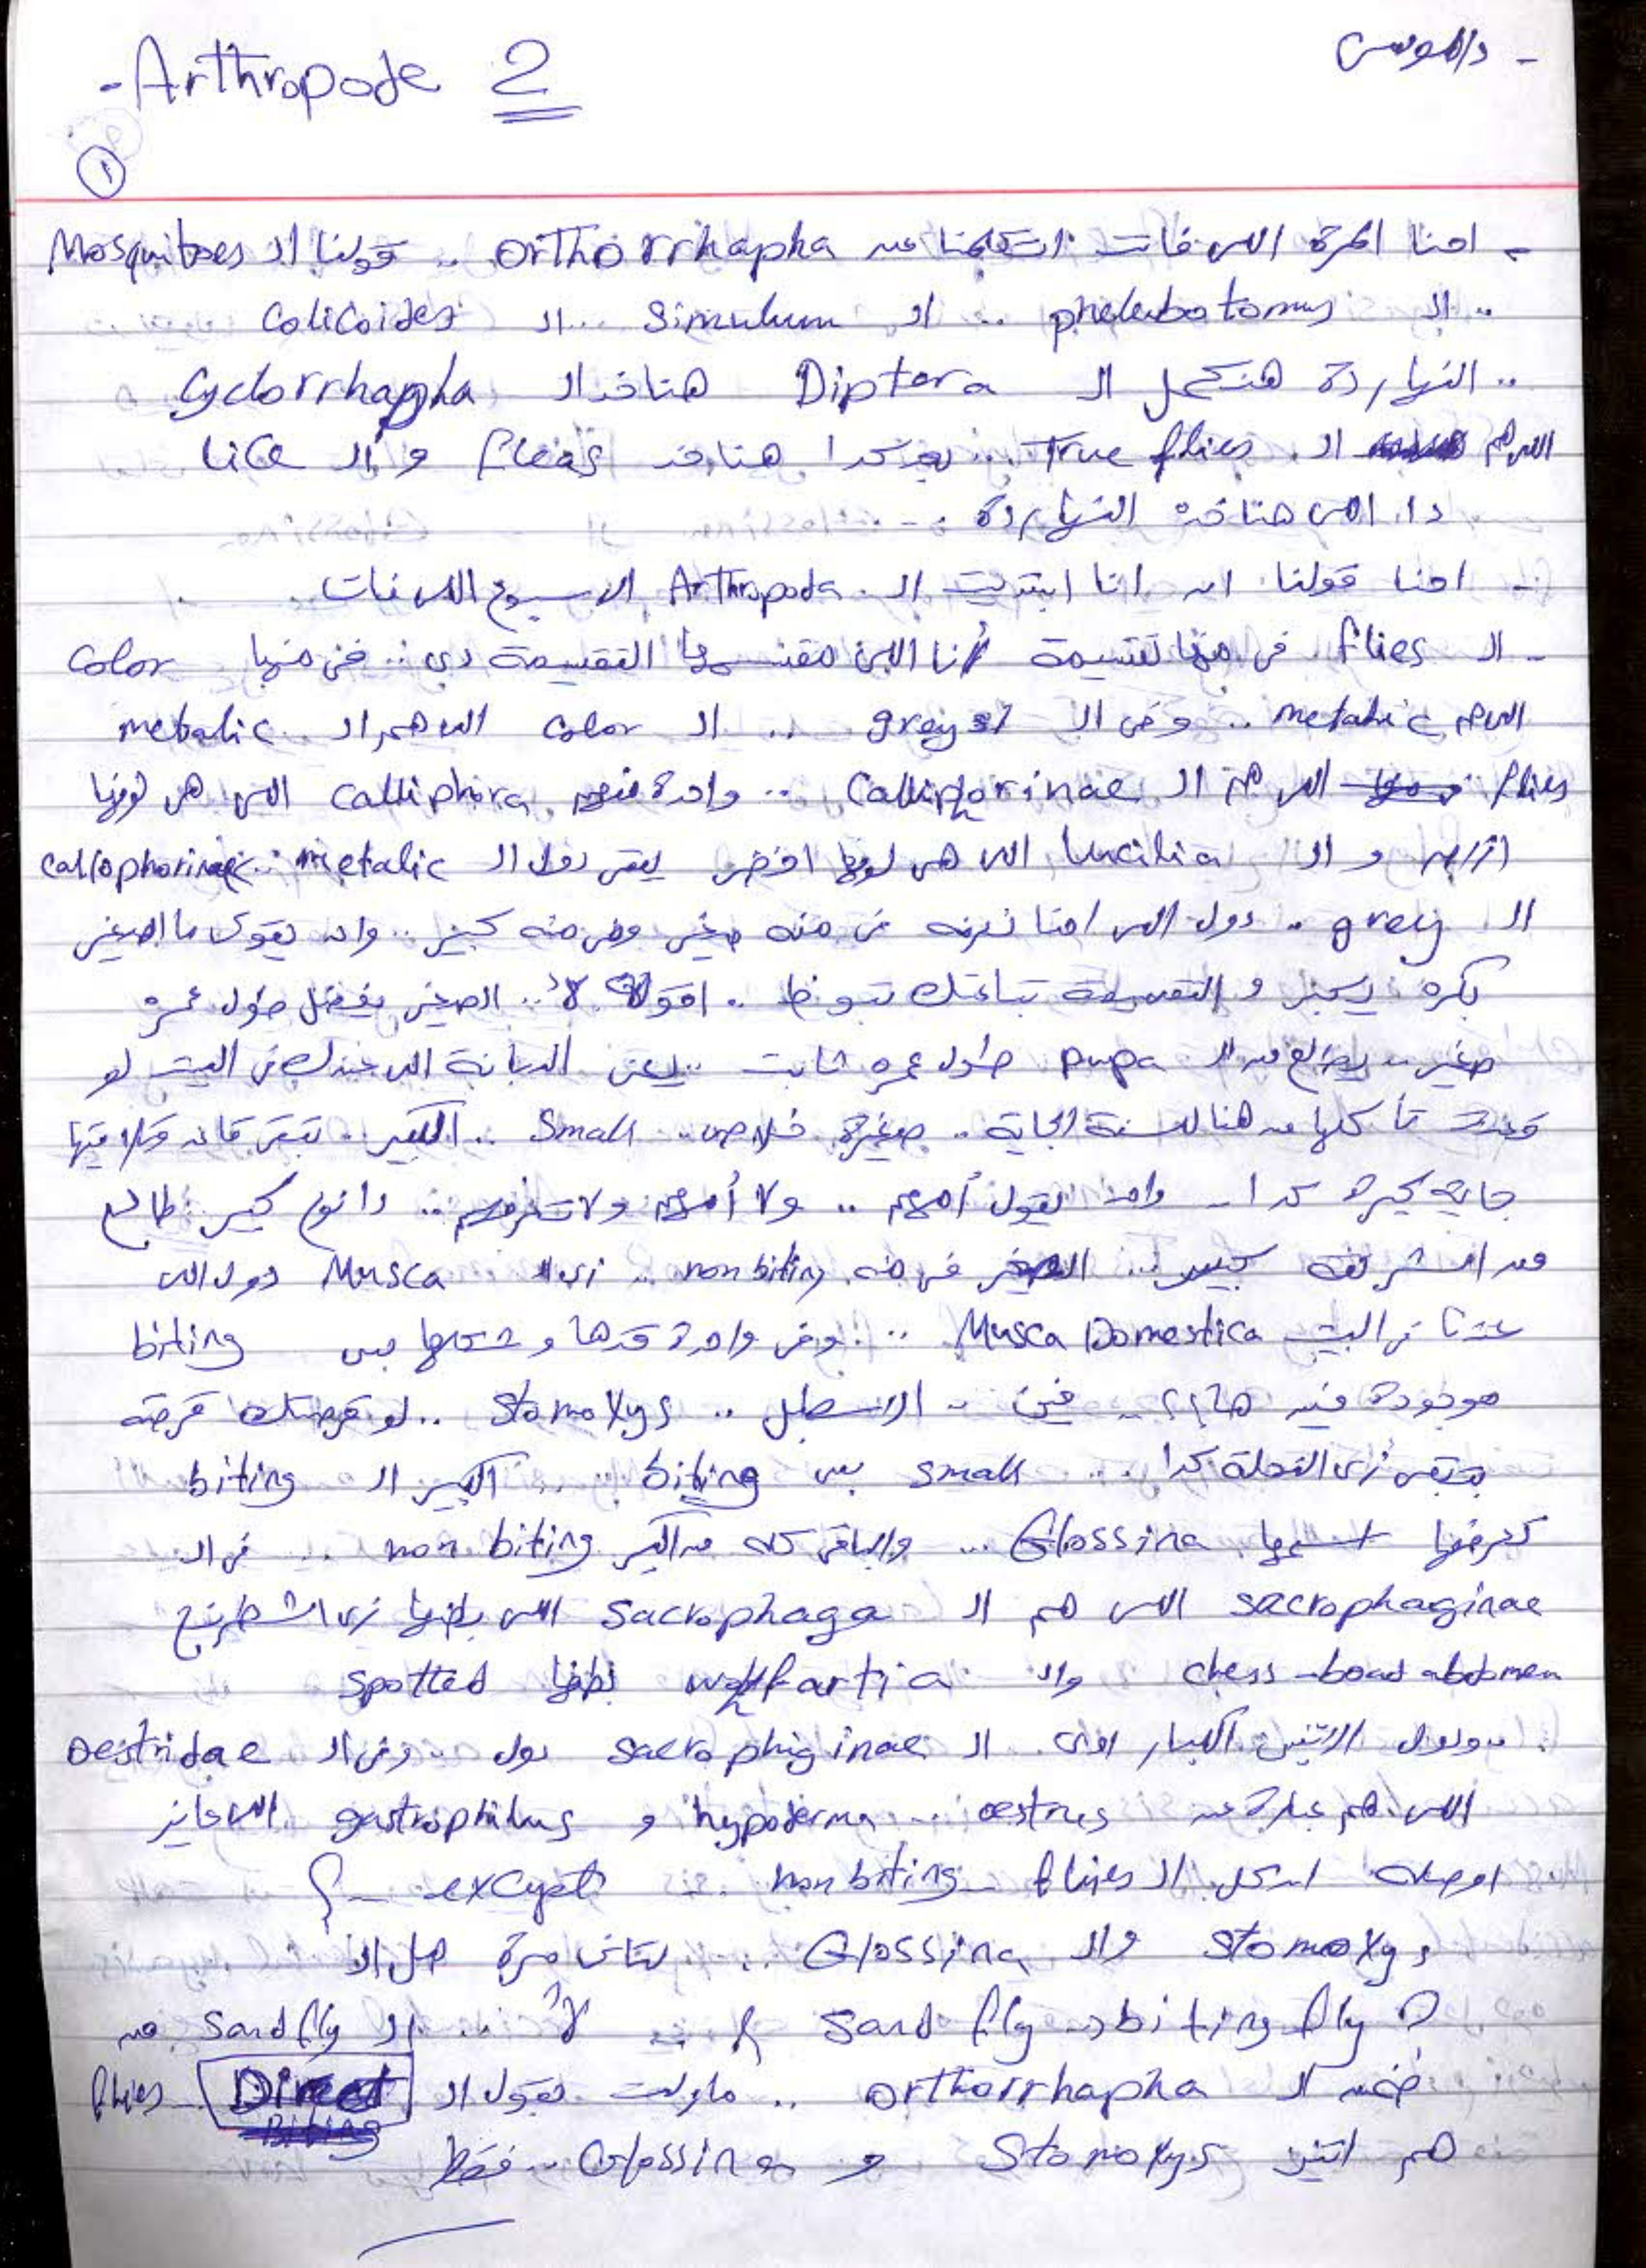 - د/الموسى
- Arthropode 2
١
- احنا المرة اللى فاتت اتكلمنا عن orthorrhapha .. قولنا ال Mosquitoes
.. ال phelebotomus .. ال Simulum .. ال Colicoides
.. النهاردة هنكمل ال Diptera هناخد ال Cyclorrhapha
اللى هم ال True flies .. بعد كدا هناخد fleas و ال lice
دا اللى هناخده النهاردة .
- احنا قولنا ان انا ابتديت ال Arthropoda الاسبوع اللى فات .
- ال flies فى منها تقسيمة انا اللى مقسمها التقسيمة دى .. فى منها color
metalic .. وفى ال grey .. ال color اللى هم ال metalic
flies اللى هم ال Calliphorinae .. واحدة منهم calliphora اللى هى لونها
ازرق و ال lucilia اللى هى لونها اخضر يبقى دول ال metalic callophorinae
ال grey .. دول اللى احنا نعرفه فى منه صغير وفى منه كبير .. واحد يقولى ما الصغير
بكره يكبر و التقسيمة بتاعتك تبوظ .. اقوله لأ .. الصغير بيفضل طول عمره
صغير .. بيطلع من ال pupa طول عمره ثابت .. يعنى الدبانة اللى عندك فى البيت لو
قعدت تأكلها من هنا للسنة الجاية .. صغيرة خلاص .. Small .. الكبير .. تبقى قاعد وتلاقيها
جاية كبيرة كدا .. واحد يقول أمهم .. ولا أمهم ولا تعرفهم .. دا نوع كبير طالع
من الشرنقة كبير .. الصغير فى منه non biting .. زى ال Musca دول اللى
عندنا فى البيت Musca Domestica .. وفى واحدة قدها و شكلها بس biting
موجودة فين .. فى الاسطبل .. Stomoxys .. لو قرصتك قرصة
بتبقى زى النحلة كدا .. small بس biting .. الكبير ال biting
تعرفها اسمها Glossina .. والباقى كله من الكبير non biting .. فى ال
sacrophaginae اللى هم ال Sacrophaga اللى بطنها زى الشطرنج
chess-board abdomen وال wohlfartia بطنها spotted
.. ودول الاتنين الكبار اوى ال sacrophiginae دول .. وفى ال Oestridae
اللى هم عبارة عن oestrus .. hypoderma و gastrophilus اللى عايز
اوصله ان كل ال flies non biting .. except ؟
Stomoxys وال Glossina .. لتانى مرة هل ال
Sand fly biting fly ؟ .. لأ .. ال Sand fly من
ضمن ال orthorrhapha .. مادمت بقول ال Direct Biting flies
هم اتنين Stomoxys و Glossina .. فقط